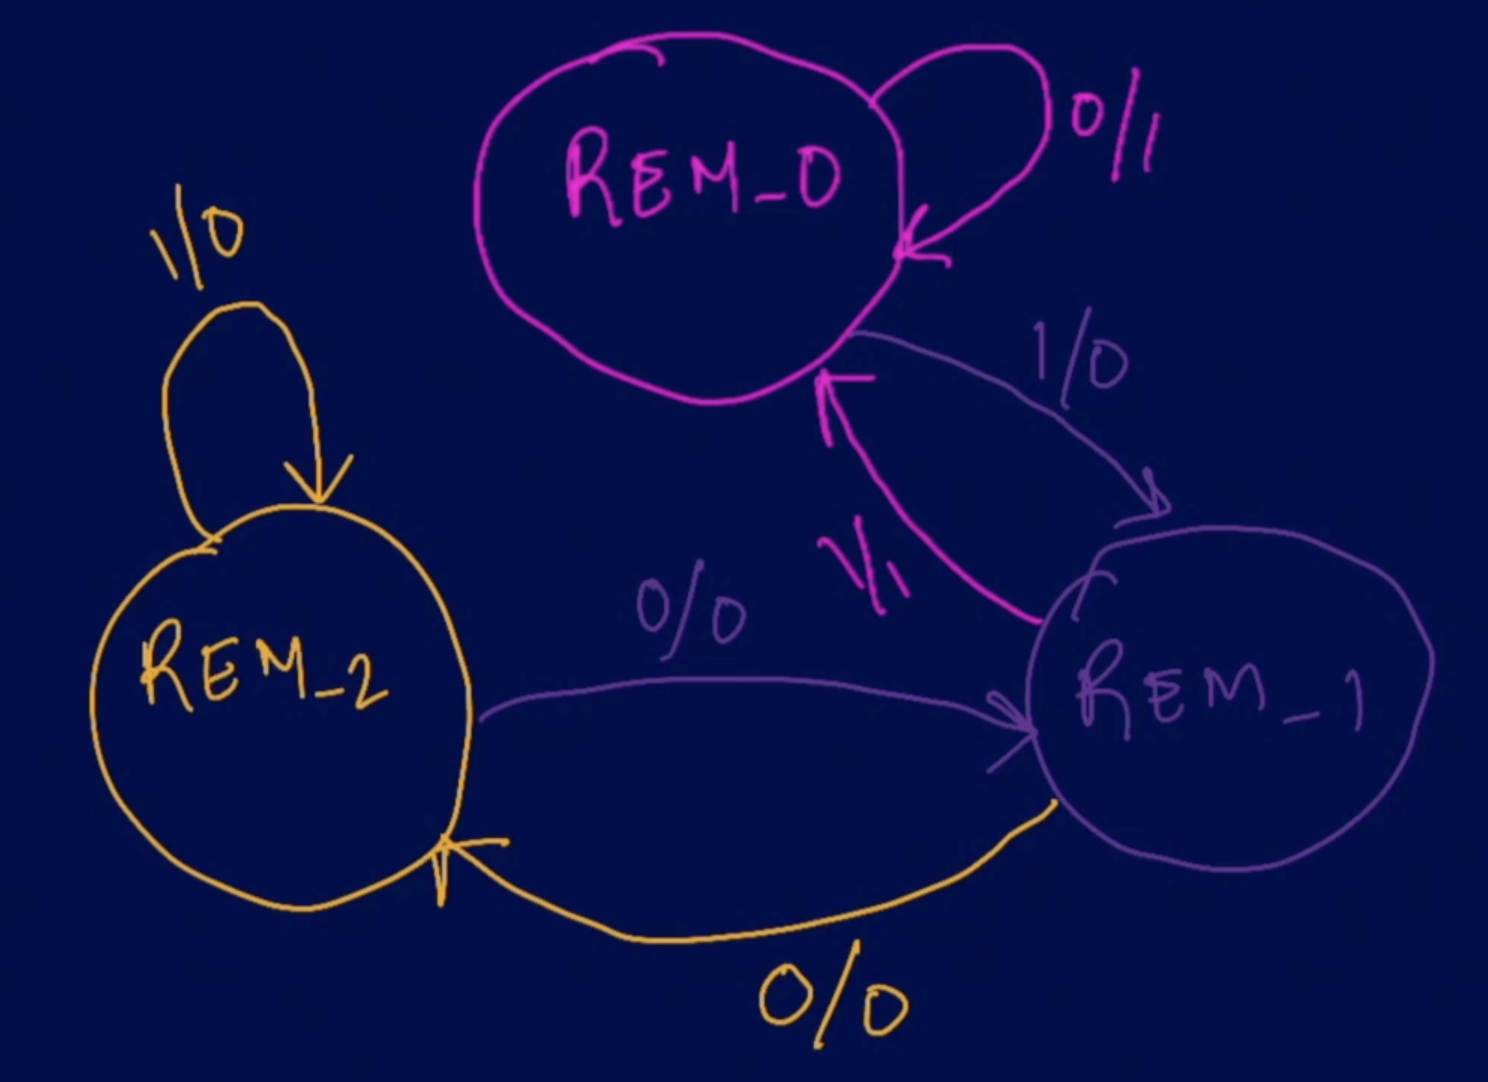 REM_0
0/1
1/0
1/0
1/1
0/0
REM_2
REM_1
0/0